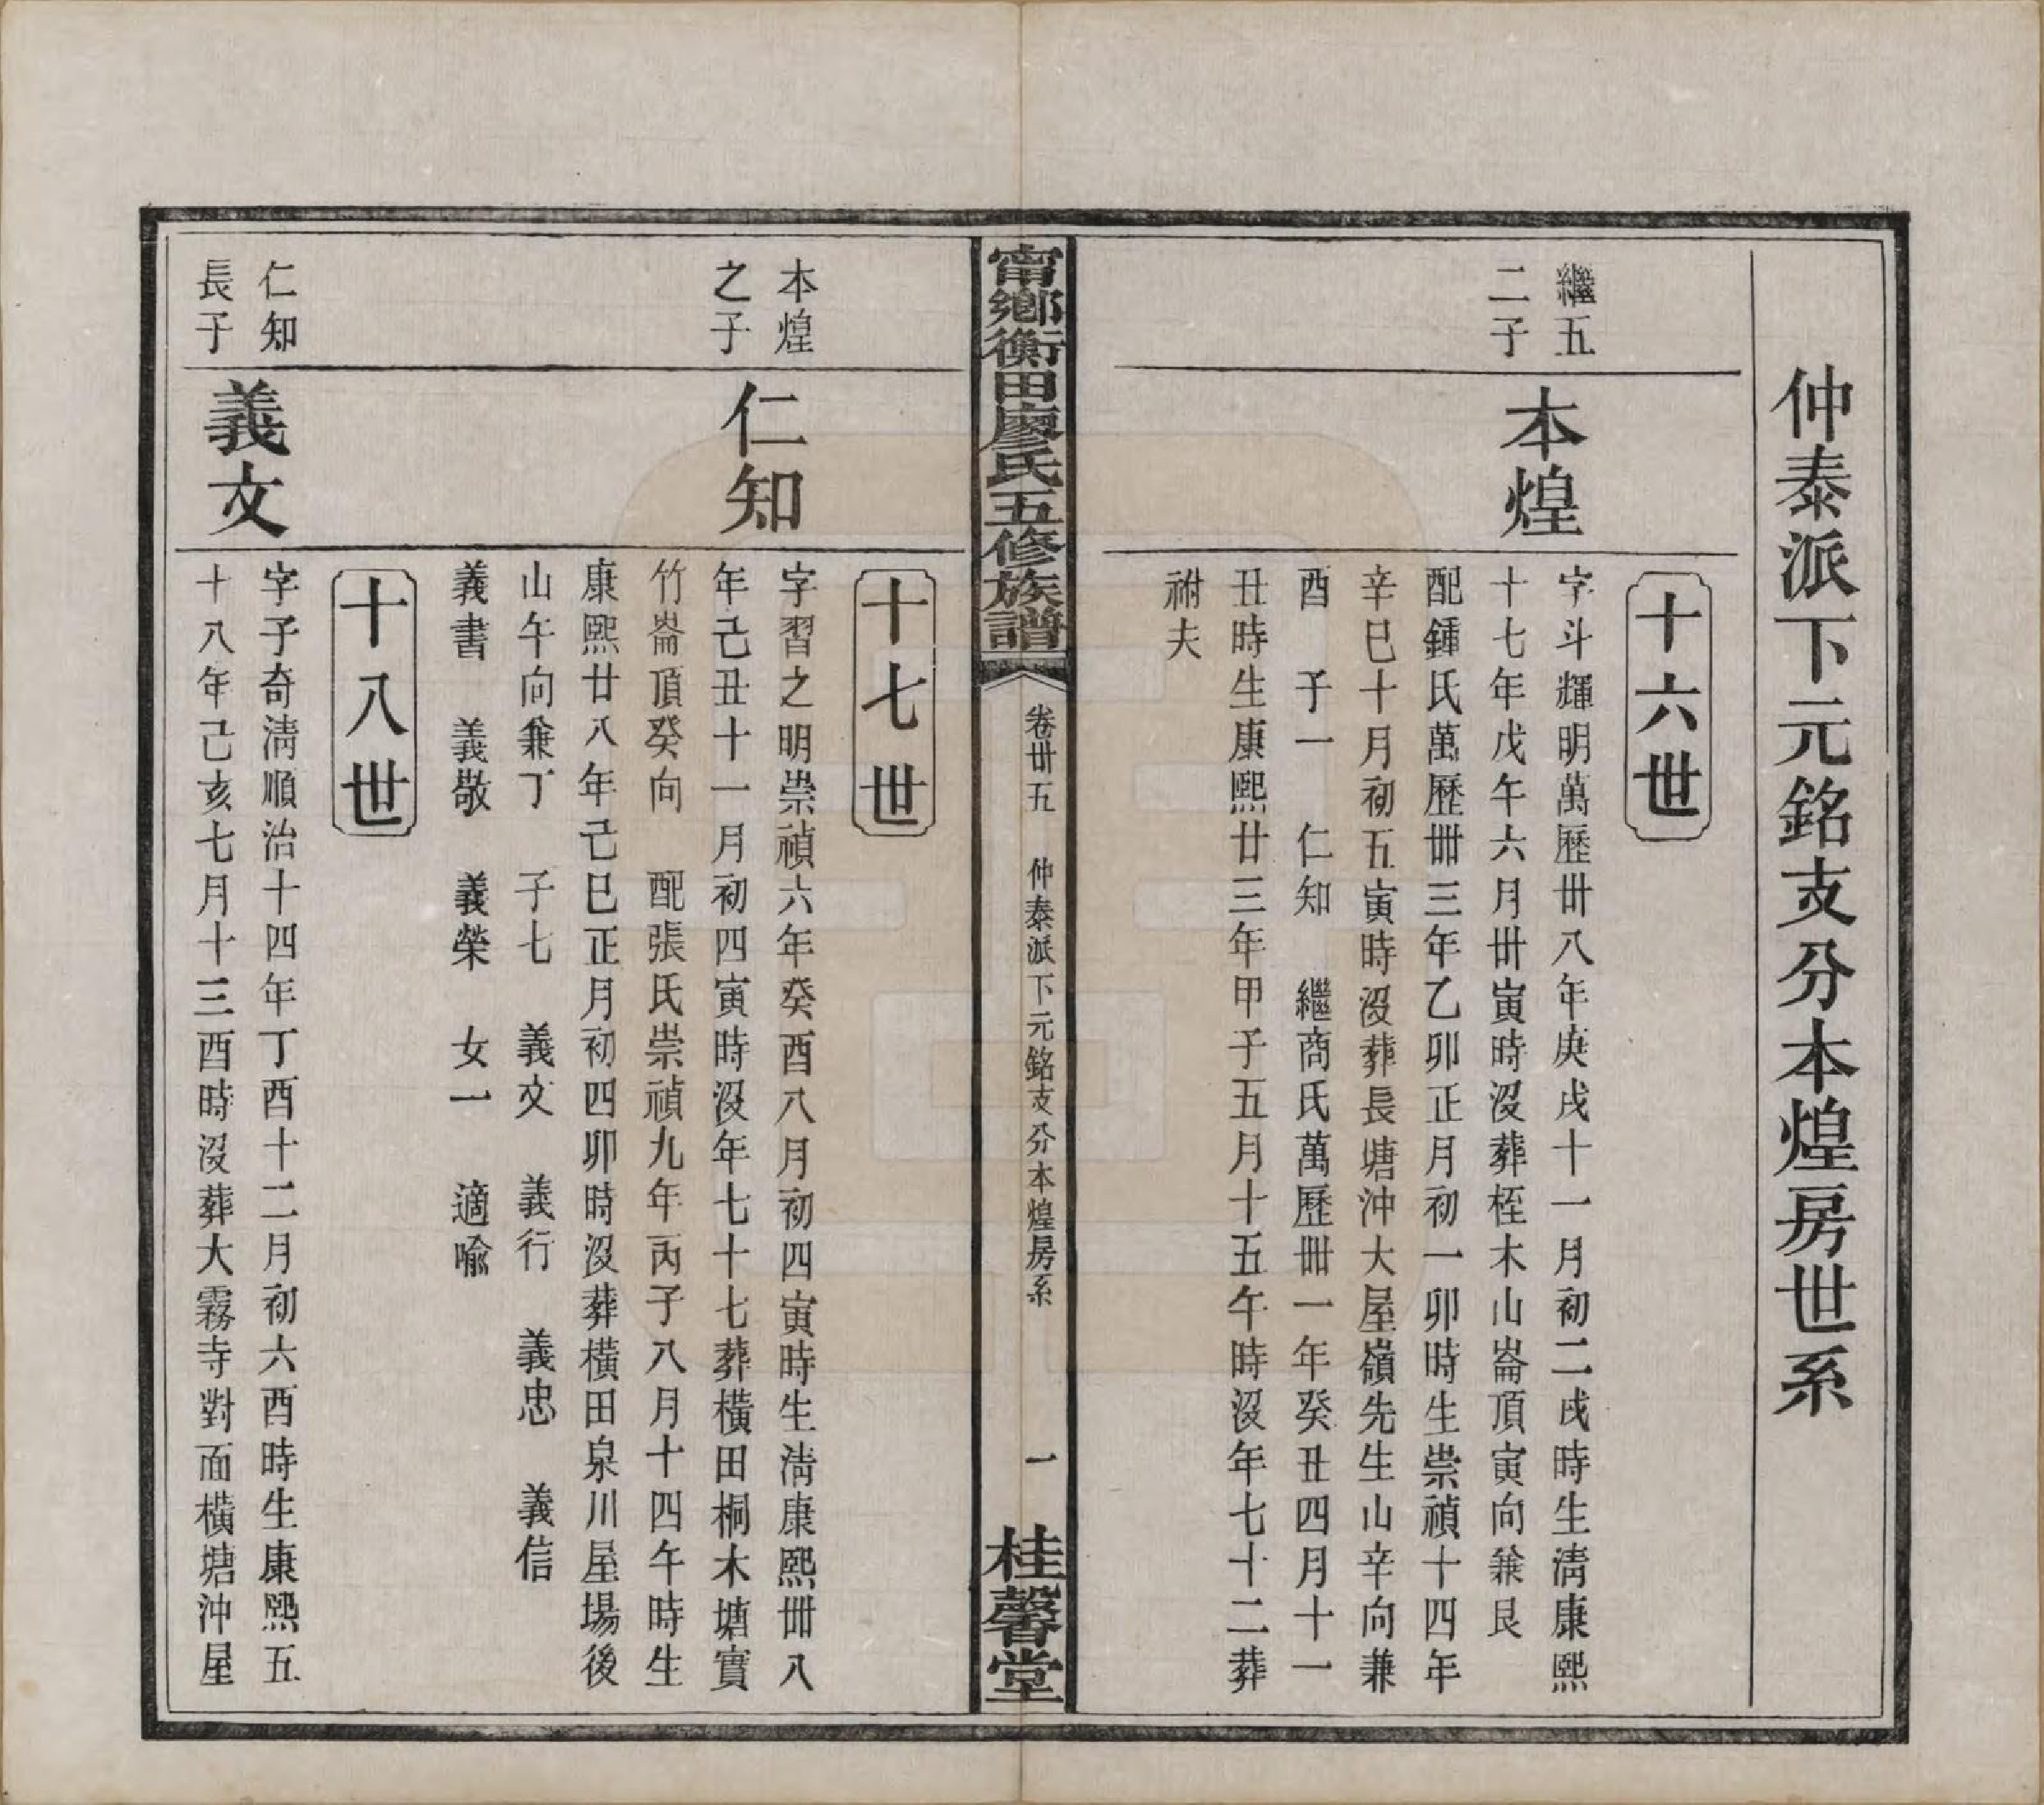 仲泰派下元銘支分本煌房世系
十六世
繼五
二子
本煌
字斗輝明萬歷卅八年庚戌十一月初二戌時生淸康熙
十七年戊午六月卅寅時沒葬桎木山崙頂寅向兼艮
配鍾氏萬歷卌三年乙卯正月初一卯時生崇禎十四年
辛巳十月初五寅時沒葬長塘沖大屋嶺先生山辛向兼
酉 子一 仁知 繼商氏萬歷卌一年癸丑四月十一
丑時生康熙廿三年甲子五月十五午時沒年七十二葬
祔夫
甯鄉衡田廖氏五修族譜
卷卅五 仲泰派下元銘支分本煌房系
一
桂馨堂
十七世
本煌
之子
仁知
字習之明崇禎六年癸酉八月初四寅時生淸康熙卌八
年己丑十一月初四寅時沒年七十七葬橫田桐木塘實
竹崙頂癸向 配張氏崇禎九年丙子八月十四午時生
康熙廿八年己巳正月初四卯時沒葬橫田泉川屋場後
山午向兼丁 子七 義文 義行 義忠 義信
義書 義敬 義榮 女一 適喩
十八世
仁知
長子
義文
字子奇淸順治十四年丁酉十二月初六酉時生康熙五
十八年己亥七月十三酉時沒葬大霧寺對面橫塘沖屋